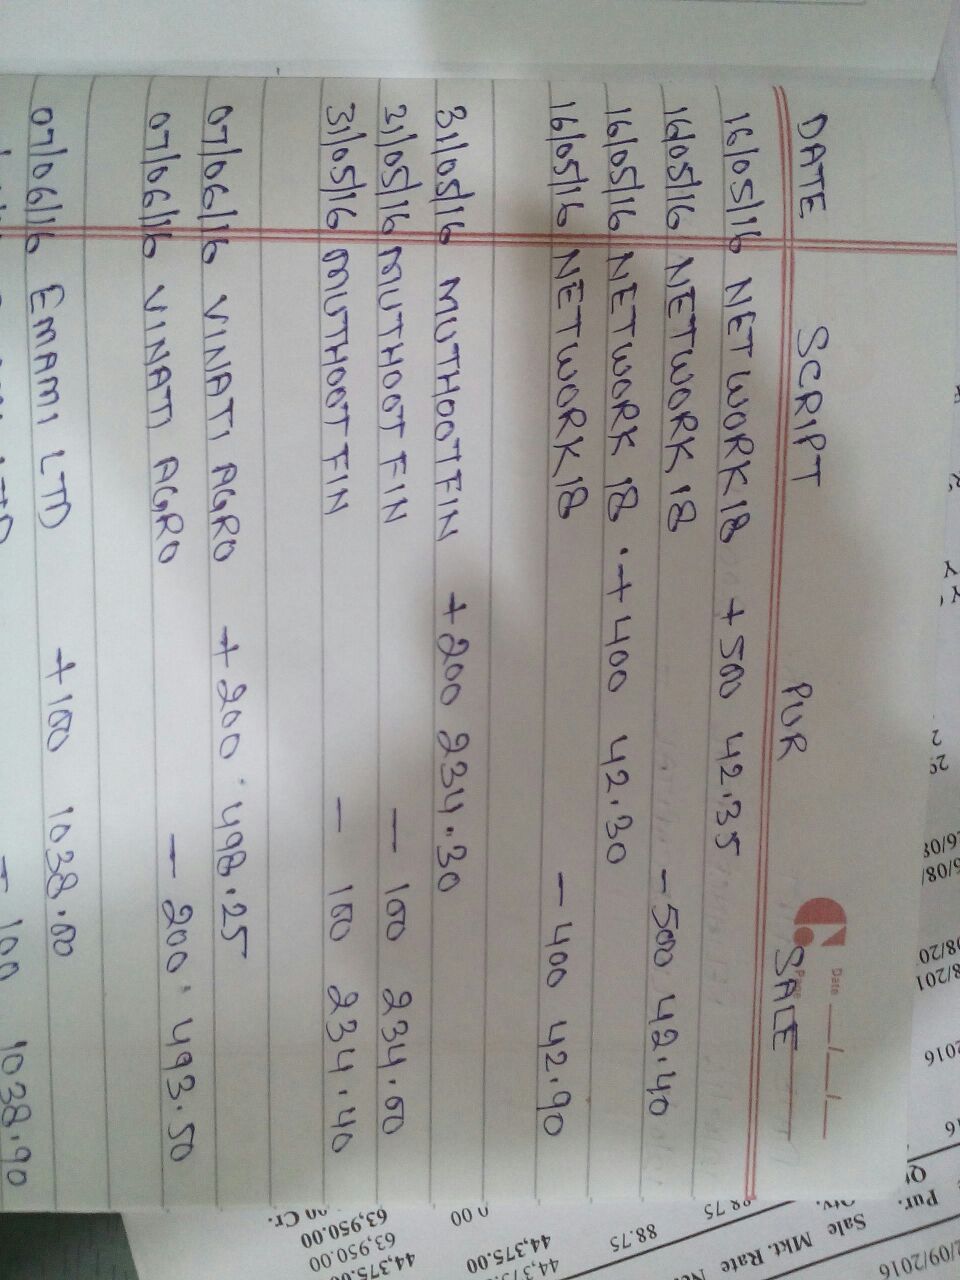 Date __/__/__
Page
DATE SCRIPT PUR SALE
16/05/16 NETWORK18 +500 42.35
16/05/16 NETWORK 18 -500 42.40
16/05/16 NETWORK 18 .+400 42.30
16/05/16 NETWORK18 -400 42.90
31/05/16 MUTHOOTFIN +200 234.30
31/05/16 MUTHOOT FIN - 100 234.00
31/05/16 MUTHOOT FIN - 100 234.40
07/06/16 VINATI AGRO +200.498.25
07/06/16 VINATI AGRO - 200.493.50
07/06/16 EMAMI LTD +100 1038.00
- 100 1038.90
2/09/2016
Pur. Sale Mkt. Rate
Qty.
88.75
88.75
44,375.00
44,375.00
63,950.00
63,950.00